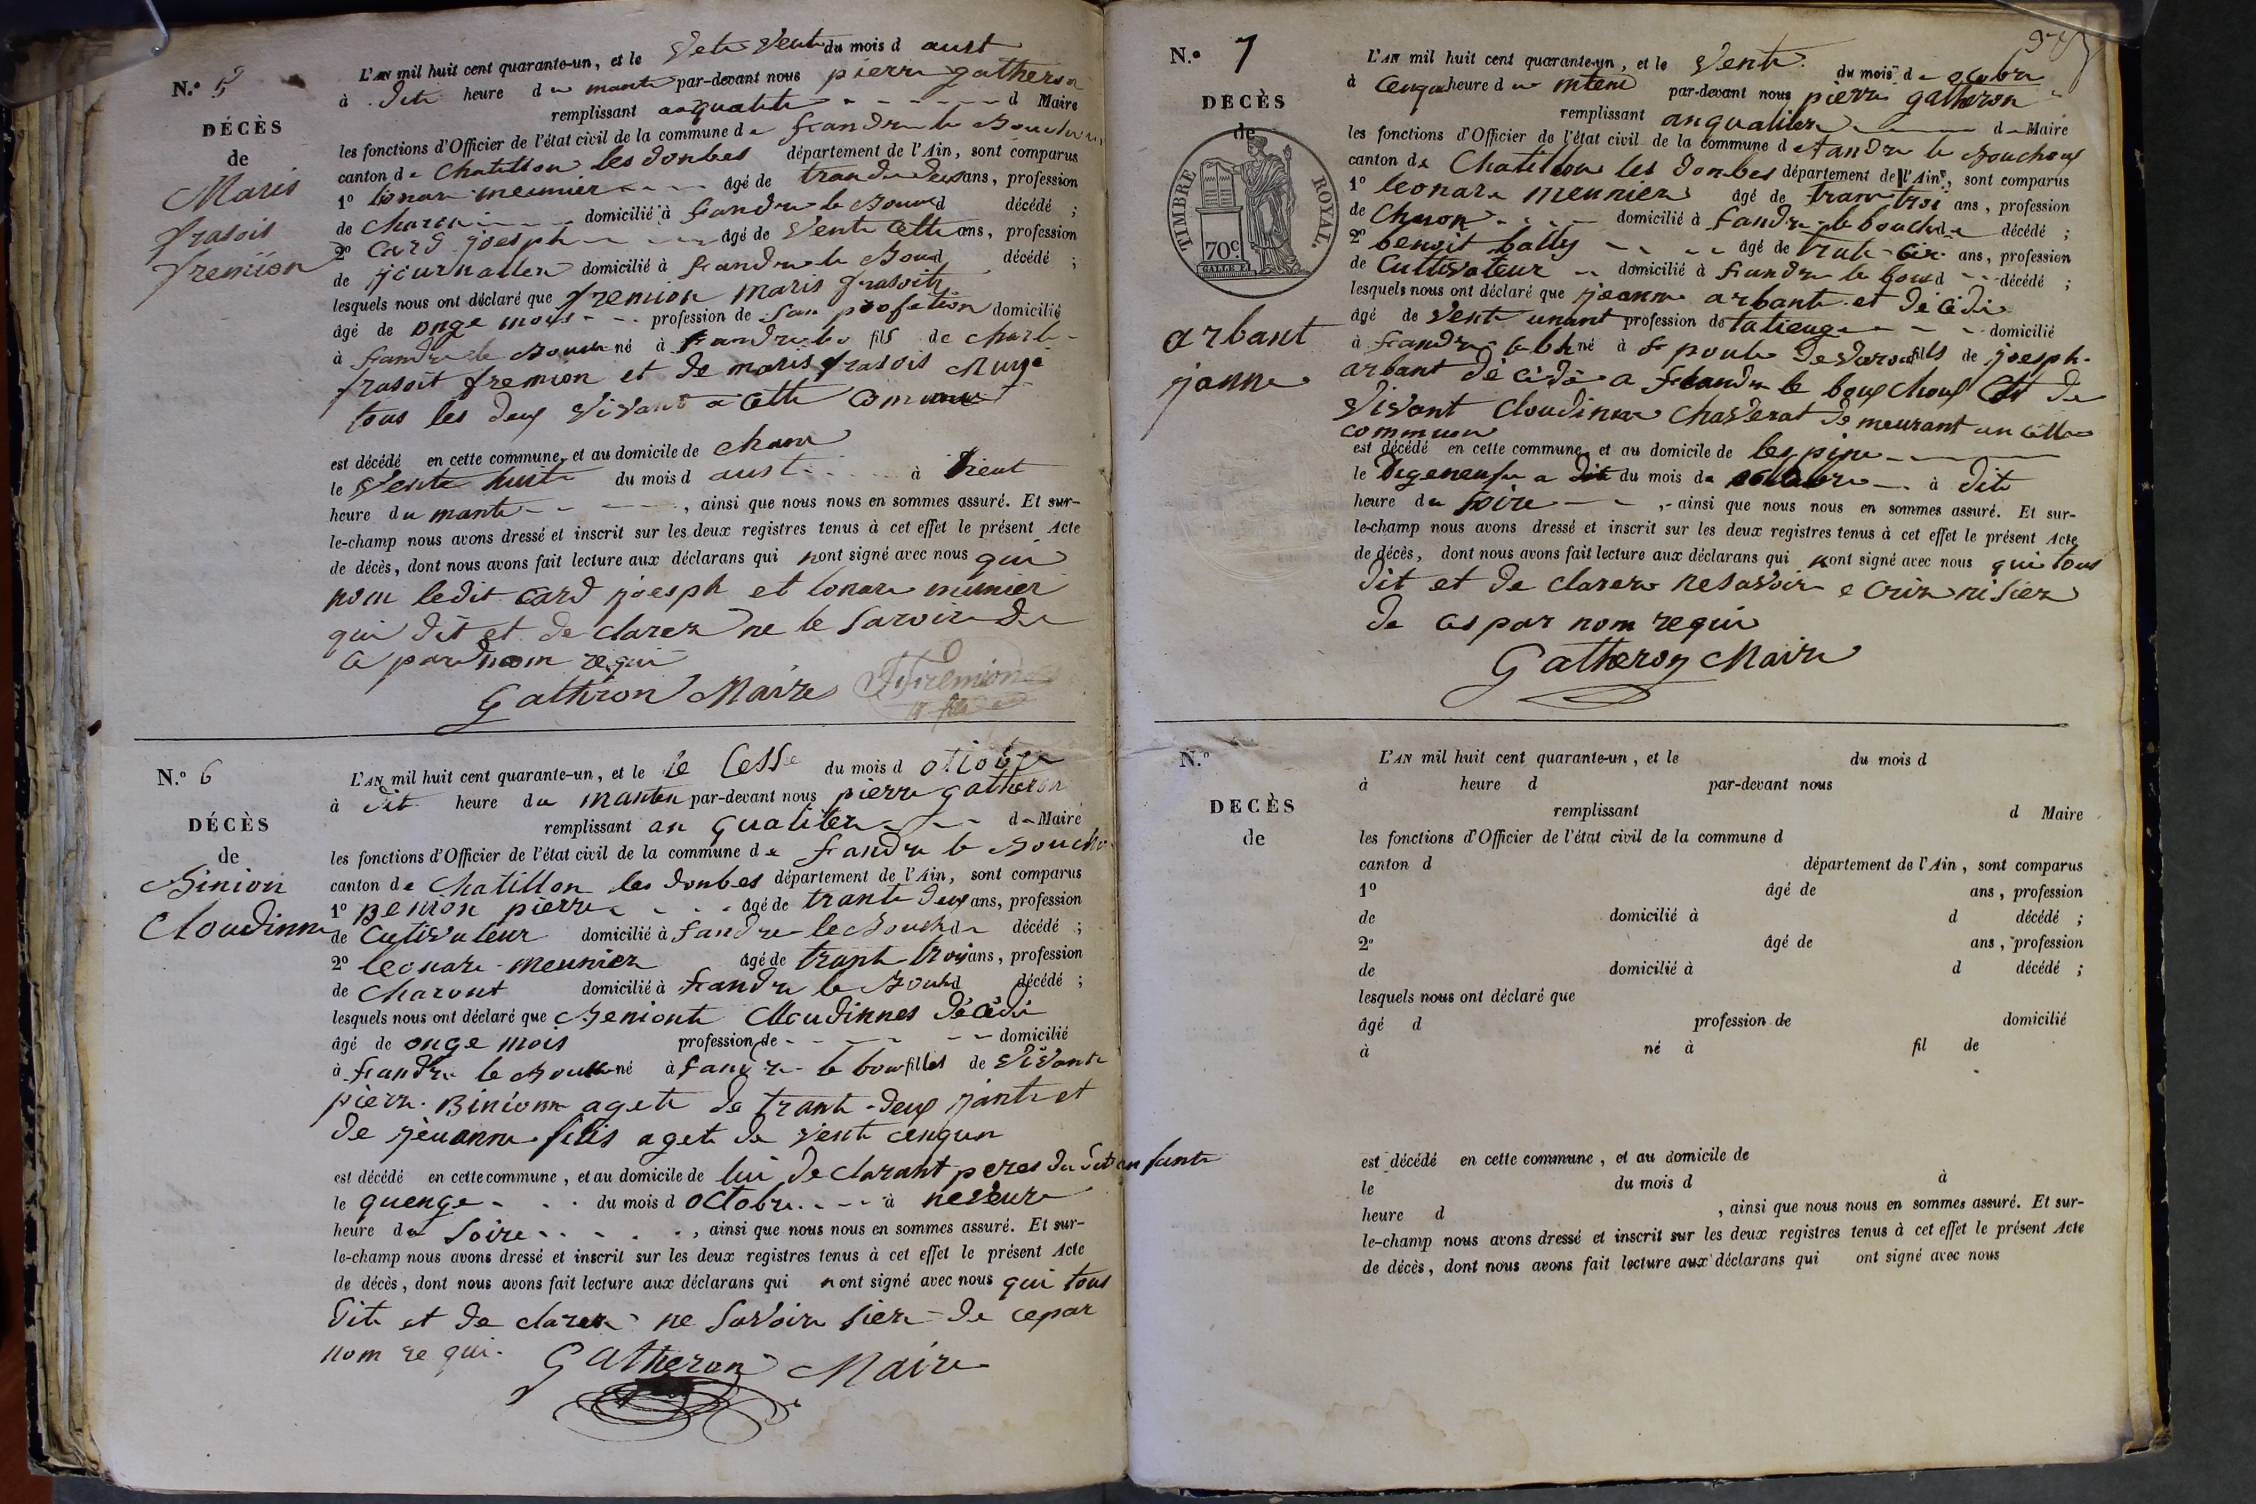 N.º 5
DÉCÈS
de
Maris
frasois
fremion
L'AN mil huit cent quarante-un, et le du mois d aust
à dite heure du mante par-devant nous pierre gatheron
remplissant anqualite d Maire
les fonctions d'Officier de l'état civil de la commune de st andre le Bouchoux
canton de Chatillon les donbes département de l'Ain, sont comparus
1º lonar meunier âgé de trande deux ans, profession
de charon domicilié à st andre le Boux d décédé ;
2º Card joesph âgé de vente cette ans, profession
de journallier domicilié à st andre le Boud décédé ;
lesquels nous ont déclaré que fremion maris frasoit
âgé de onge mois profession de san profetion domicilié
à st andre le Boux né à st andre le bo fils de charle
frasoit fremion et de maris frasois
tous les deux vivant a cette Commune
est décédé en cette commune, et au domicile de
le vente huite du mois d aust à
heure du mante , ainsi que nous nous en sommes assuré. Et sur-
le-champ nous avons dressé et inscrit sur les deux registres tenus à cet effet le présent Acte
de décès, dont nous avons fait lecture aux déclarans qui nont signé avec nous qui
nom ledit card joesph et lonar meunier
qui dit et de clarer ne le savoir de
ce par nom requi
Gathron Maire fremion
N.º 6
DÉCÈS
de
Binion
Cloudinne
L'AN mil huit cent quarante-un, et le le Cesse du mois d otiobre
à dit heure du manten par-devant nous pierre gatheron
remplissant an qualiter d Maire
les fonctions d'Officier de l'état civil de la commune de st andre le Boucho
canton de Chatillon les donbes département de l'Ain, sont comparus
1º Benion pierre âgé de trante deux ans, profession
de Cutivateur domicilié à st andre le Bouxd décédé ;
2º leonare meunier âgé de trante troy ans, profession
de Charont domicilié à st andre le Bouxd décédé ;
lesquels nous ont déclaré que Beniont Cloudinnes décédé
âgé de onge mois profession de domicilié
à st andre le Boux né à st andre le bou filles de vivante
pierre Binionn agete de trante deux jante et
de jeuanne agete de vente cenqun
est décédé en cette commune, et au domicile de lui de clarant peres du dit an fante
le quenge du mois d octobre à neveure
heure du soire , ainsi que nous nous en sommes assuré. Et sur-
le-champ nous avons dressé et inscrit sur les deux registres tenus à cet effet le présent Acte
de décès, dont nous avons fait lecture aux déclarans qui nont signé avec nous qui tous
dite et de clarer ne savoire sier de ce par
nom re qui.
Gatheron Maire
N.º 7
DECÈS
de
TIMBRE ROYAL.
70c.
arbant
janne
L'AN mil huit cent quarante-un, et le vente du mois d octobre
à cenqu heure du par-devant nous pierre gatheron
remplissant anqualiter d Maire
les fonctions d'Officier de l'état civil de la commune de st andre le Bouchoux
canton de Chatillon les donbes département de l'Ain, sont comparus
1º leonare meunier âgé de trante troi ans, profession
de Charon domicilié à st andre le bouchd décédé ;
2º benoit bally âgé de ans, profession
de Cultivateur domicilié à st andre le bouxd décédé ;
lesquels nous ont déclaré que jeanne arbante et décédé
âgé de vente unant profession de domicilié
à st andre le bo né à st poule de varax fills de joesph
arbant décidé a st andre le bouxchoux Et de
vivant Cloudinne Chaverat de meurant en cette
commun
est décédé en cette commune, et au domicile de lespine
le digeneufe a dit du mois de octobre à dite
heure du soire , ainsi que nous nous en sommes assuré. Et sur-
le-champ nous avons dressé et inscrit sur les deux registres tenus à cet effet le présent Acte
de décès, dont nous avons fait lecture aux déclarans qui nont signé avec nous qui tous
dit et de clarer nesavoir e crir ni sier
de ces par nom requi
Gatheron Maire
N.º
DECÈS
de
L'AN mil huit cent quarante-un, et le du mois d
à heure d par-devant nous
remplissant d Maire
les fonctions d'Officier de l'état civil de la commune d
canton d département de l'Ain, sont comparus
1º âgé de ans, profession
de domicilié à d décédé ;
2º âgé de ans, profession
de domicilié à d décédé ;
lesquels nous ont déclaré que
âgé d profession de domicilié
à né à fil de
est décédé en cette commune, et au domicile de
le du mois d à
heure d , ainsi que nous nous en sommes assuré. Et sur-
le-champ nous avons dressé et inscrit sur les deux registres tenus à cet effet le présent Acte
de décès, dont nous avons fait lecture aux déclarans qui ont signé avec nous